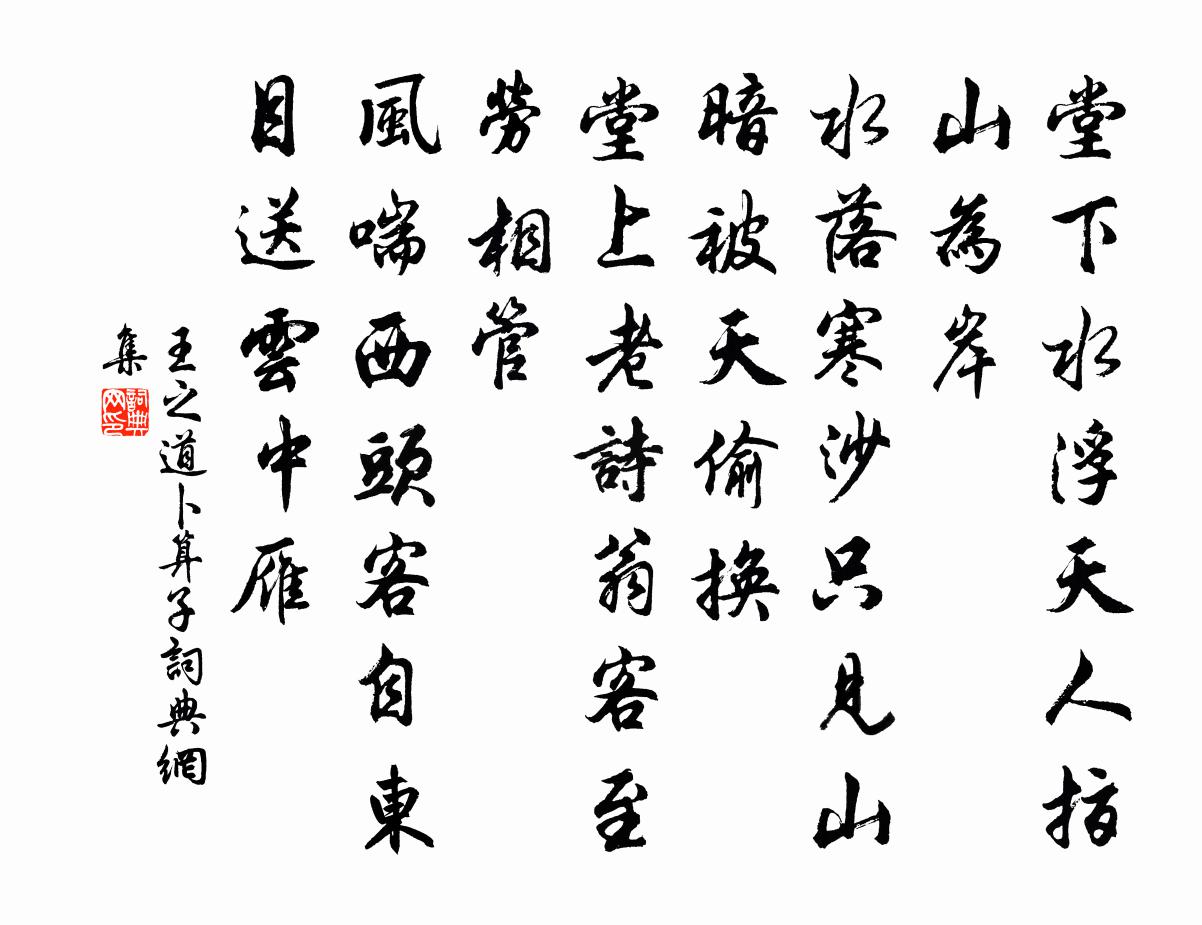 堂下水浮天人指
山為岸
水落寒沙只見山
暗被天偷換
堂上老詩翁客至
勞相管
風喘西頭客自東
目送雲中雁
王之道卜算子詞典網
集
詞典
网印